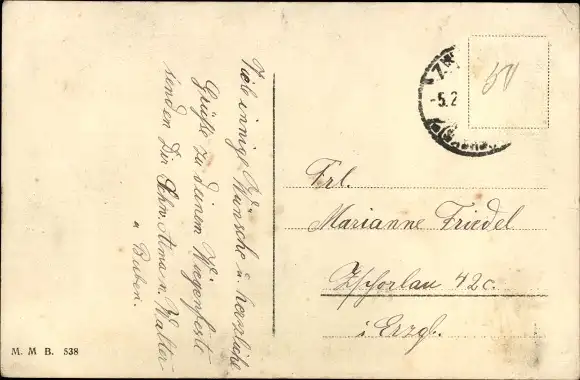 Viele innige Wünsche u. herzliche
Grüße zu Deinem Wiegenfeste
senden Dir Schw. Alma u. Walter
u Buben.
-5.2
Frl.
Marianne Friedel
Zschorlau 42c.
i Erzgb.
M. M B. 538